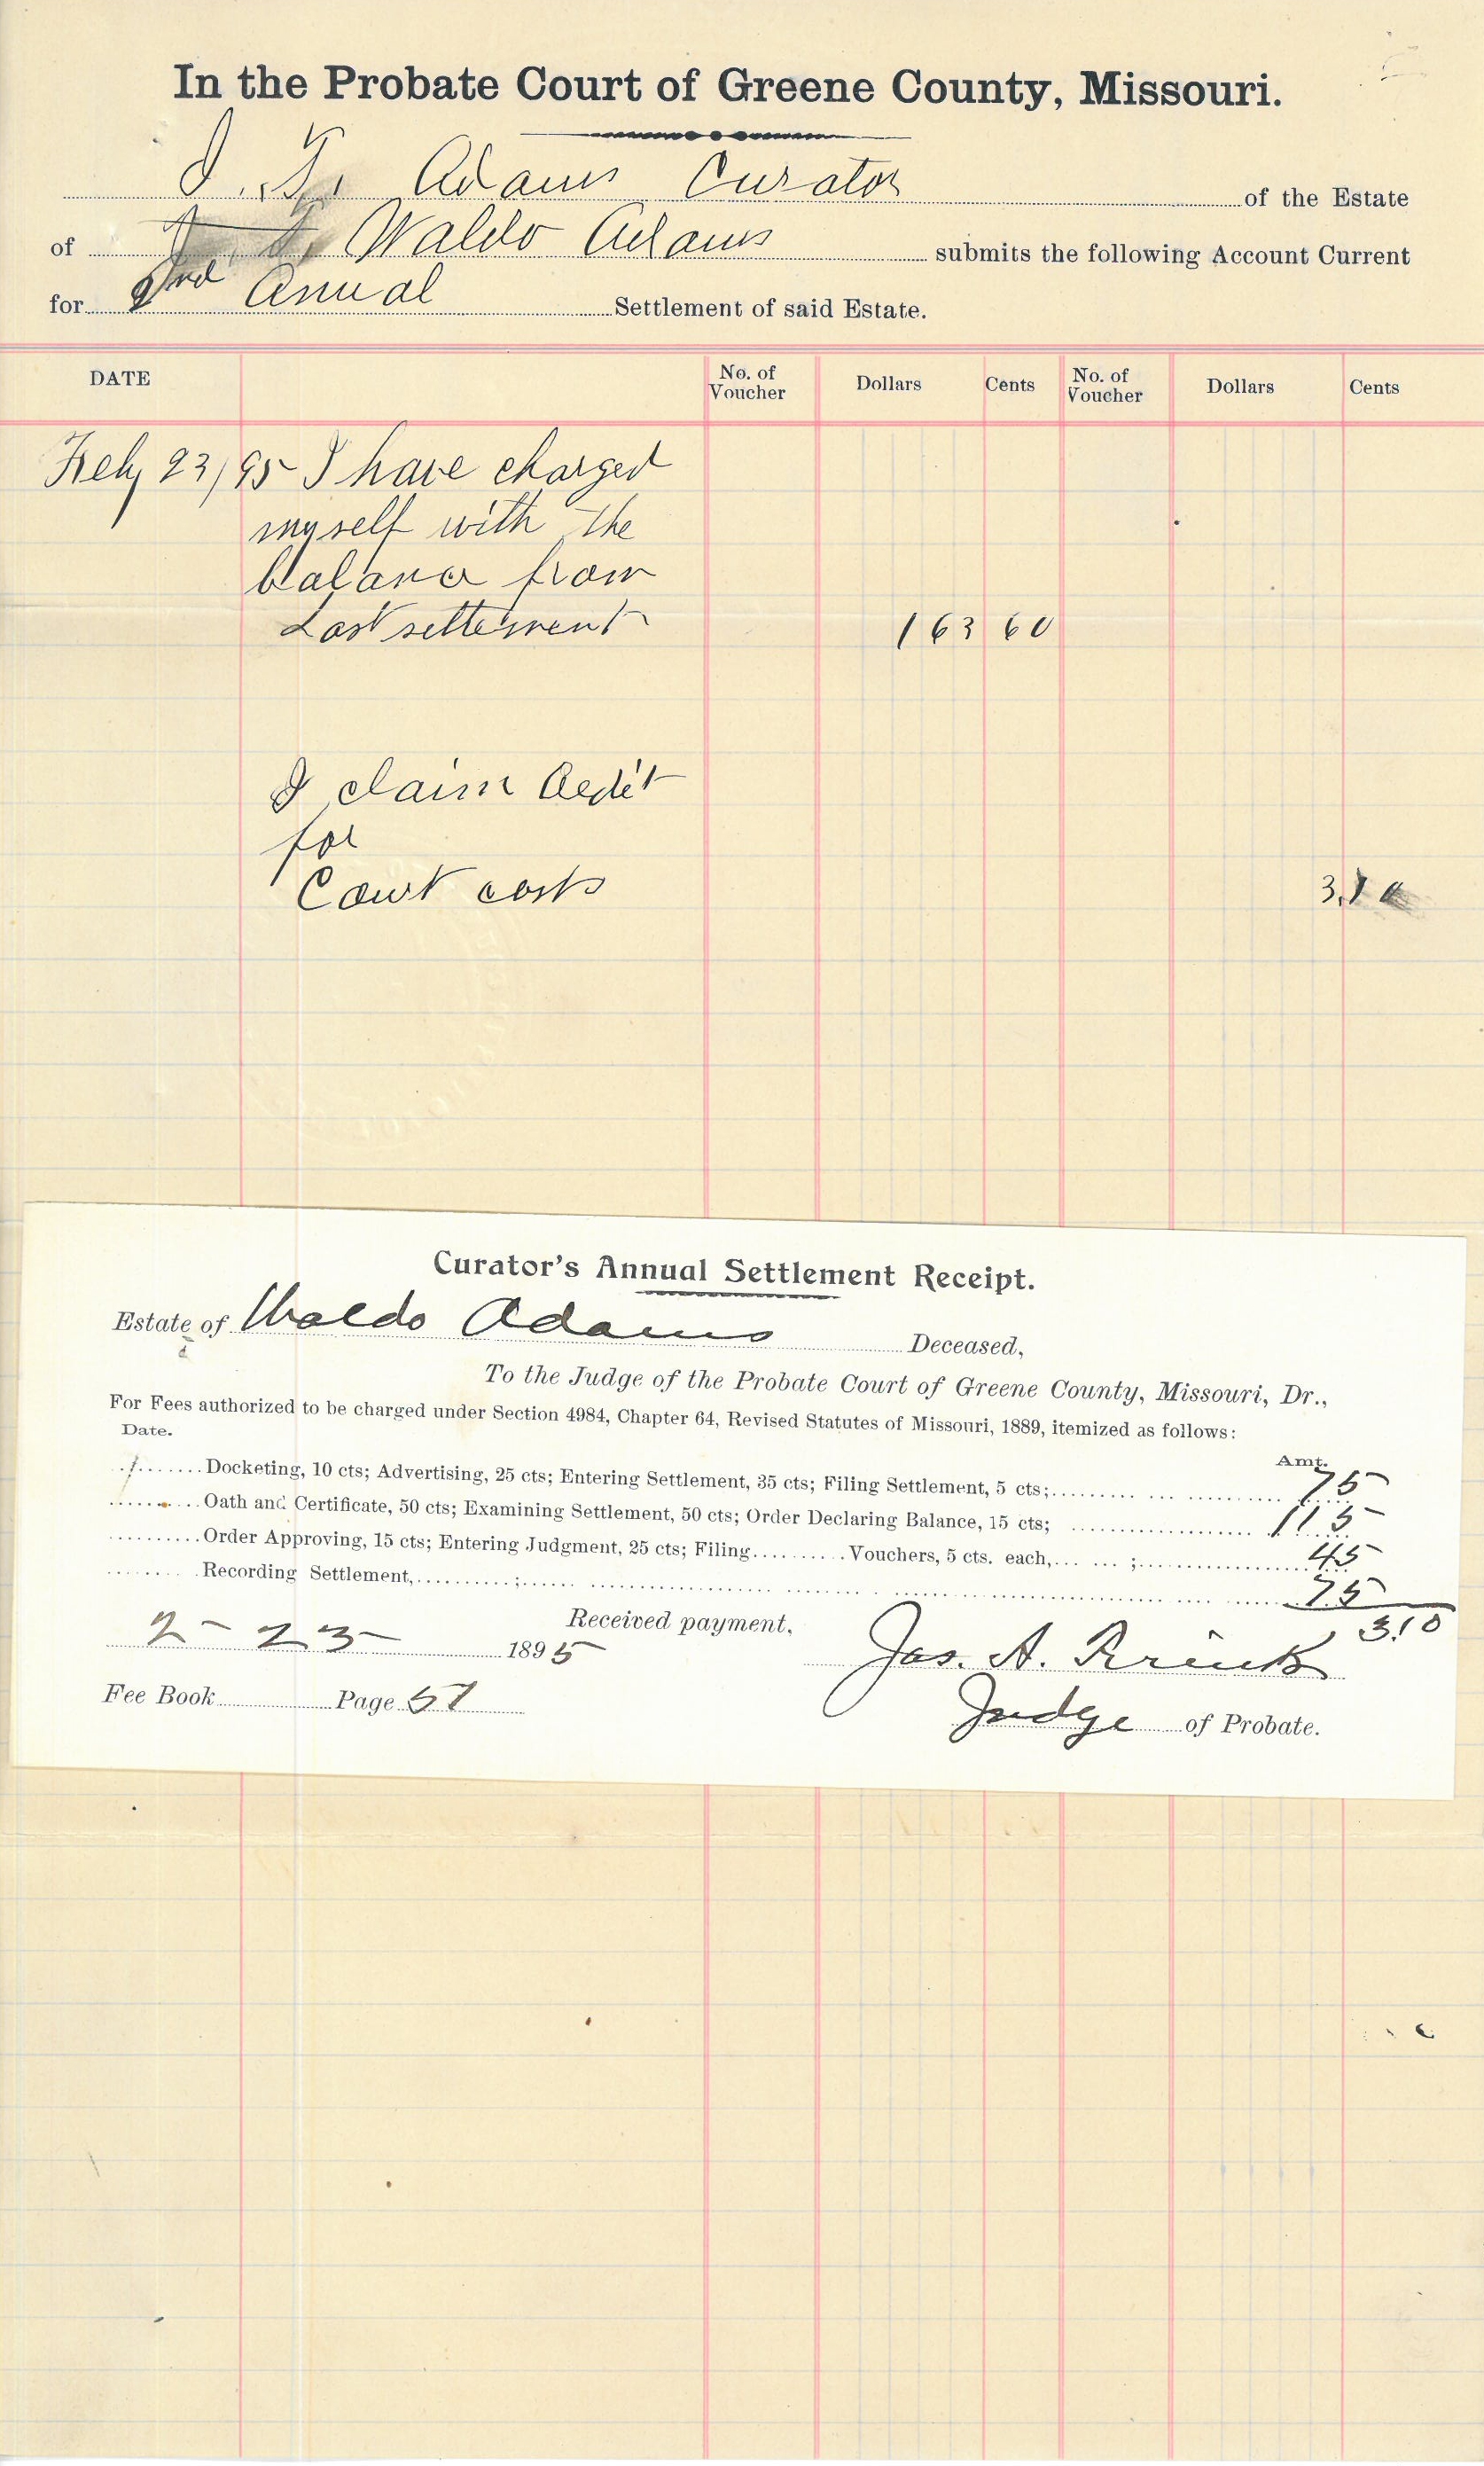 In the Probate Court of Greene County, Missouri.
J. T. Adams Curator of the Estate
of Waldo Adams submits the following Account Current
for 2nd Annual Settlement of said Estate.
DATE No. of Voucher Dollars Cents No. of Voucher Dollars Cents
Feby 23/95 I have charged
myself with the
balance from
Last settlement 163 60
I claim Cedit
for
Court costs 3.10
Curator's Annual Settlement Receipt.
Estate of Waldo Adams Deceased,
To the Judge of the Probate Court of Greene County, Missouri, Dr.,
For Fees authorized to be charged under Section 4984, Chapter 64, Revised Statutes of Missouri, 1889, itemized as follows:
Date. Amt.
Docketing, 10 cts; Advertising, 25 cts; Entering Settlement, 35 cts; Filing Settlement, 5 cts; 75
Oath and Certificate, 50 cts; Examining Settlement, 50 cts; Order Declaring Balance, 15 cts; 115
Order Approving, 15 cts; Entering Judgment, 25 cts; Filing Vouchers, 5 cts. each, ; 45
Recording Settlement, ; 75
3.10
Received payment,
2-23- 1895 Jas. A.
Fee Book Page 57
Judge of Probate.